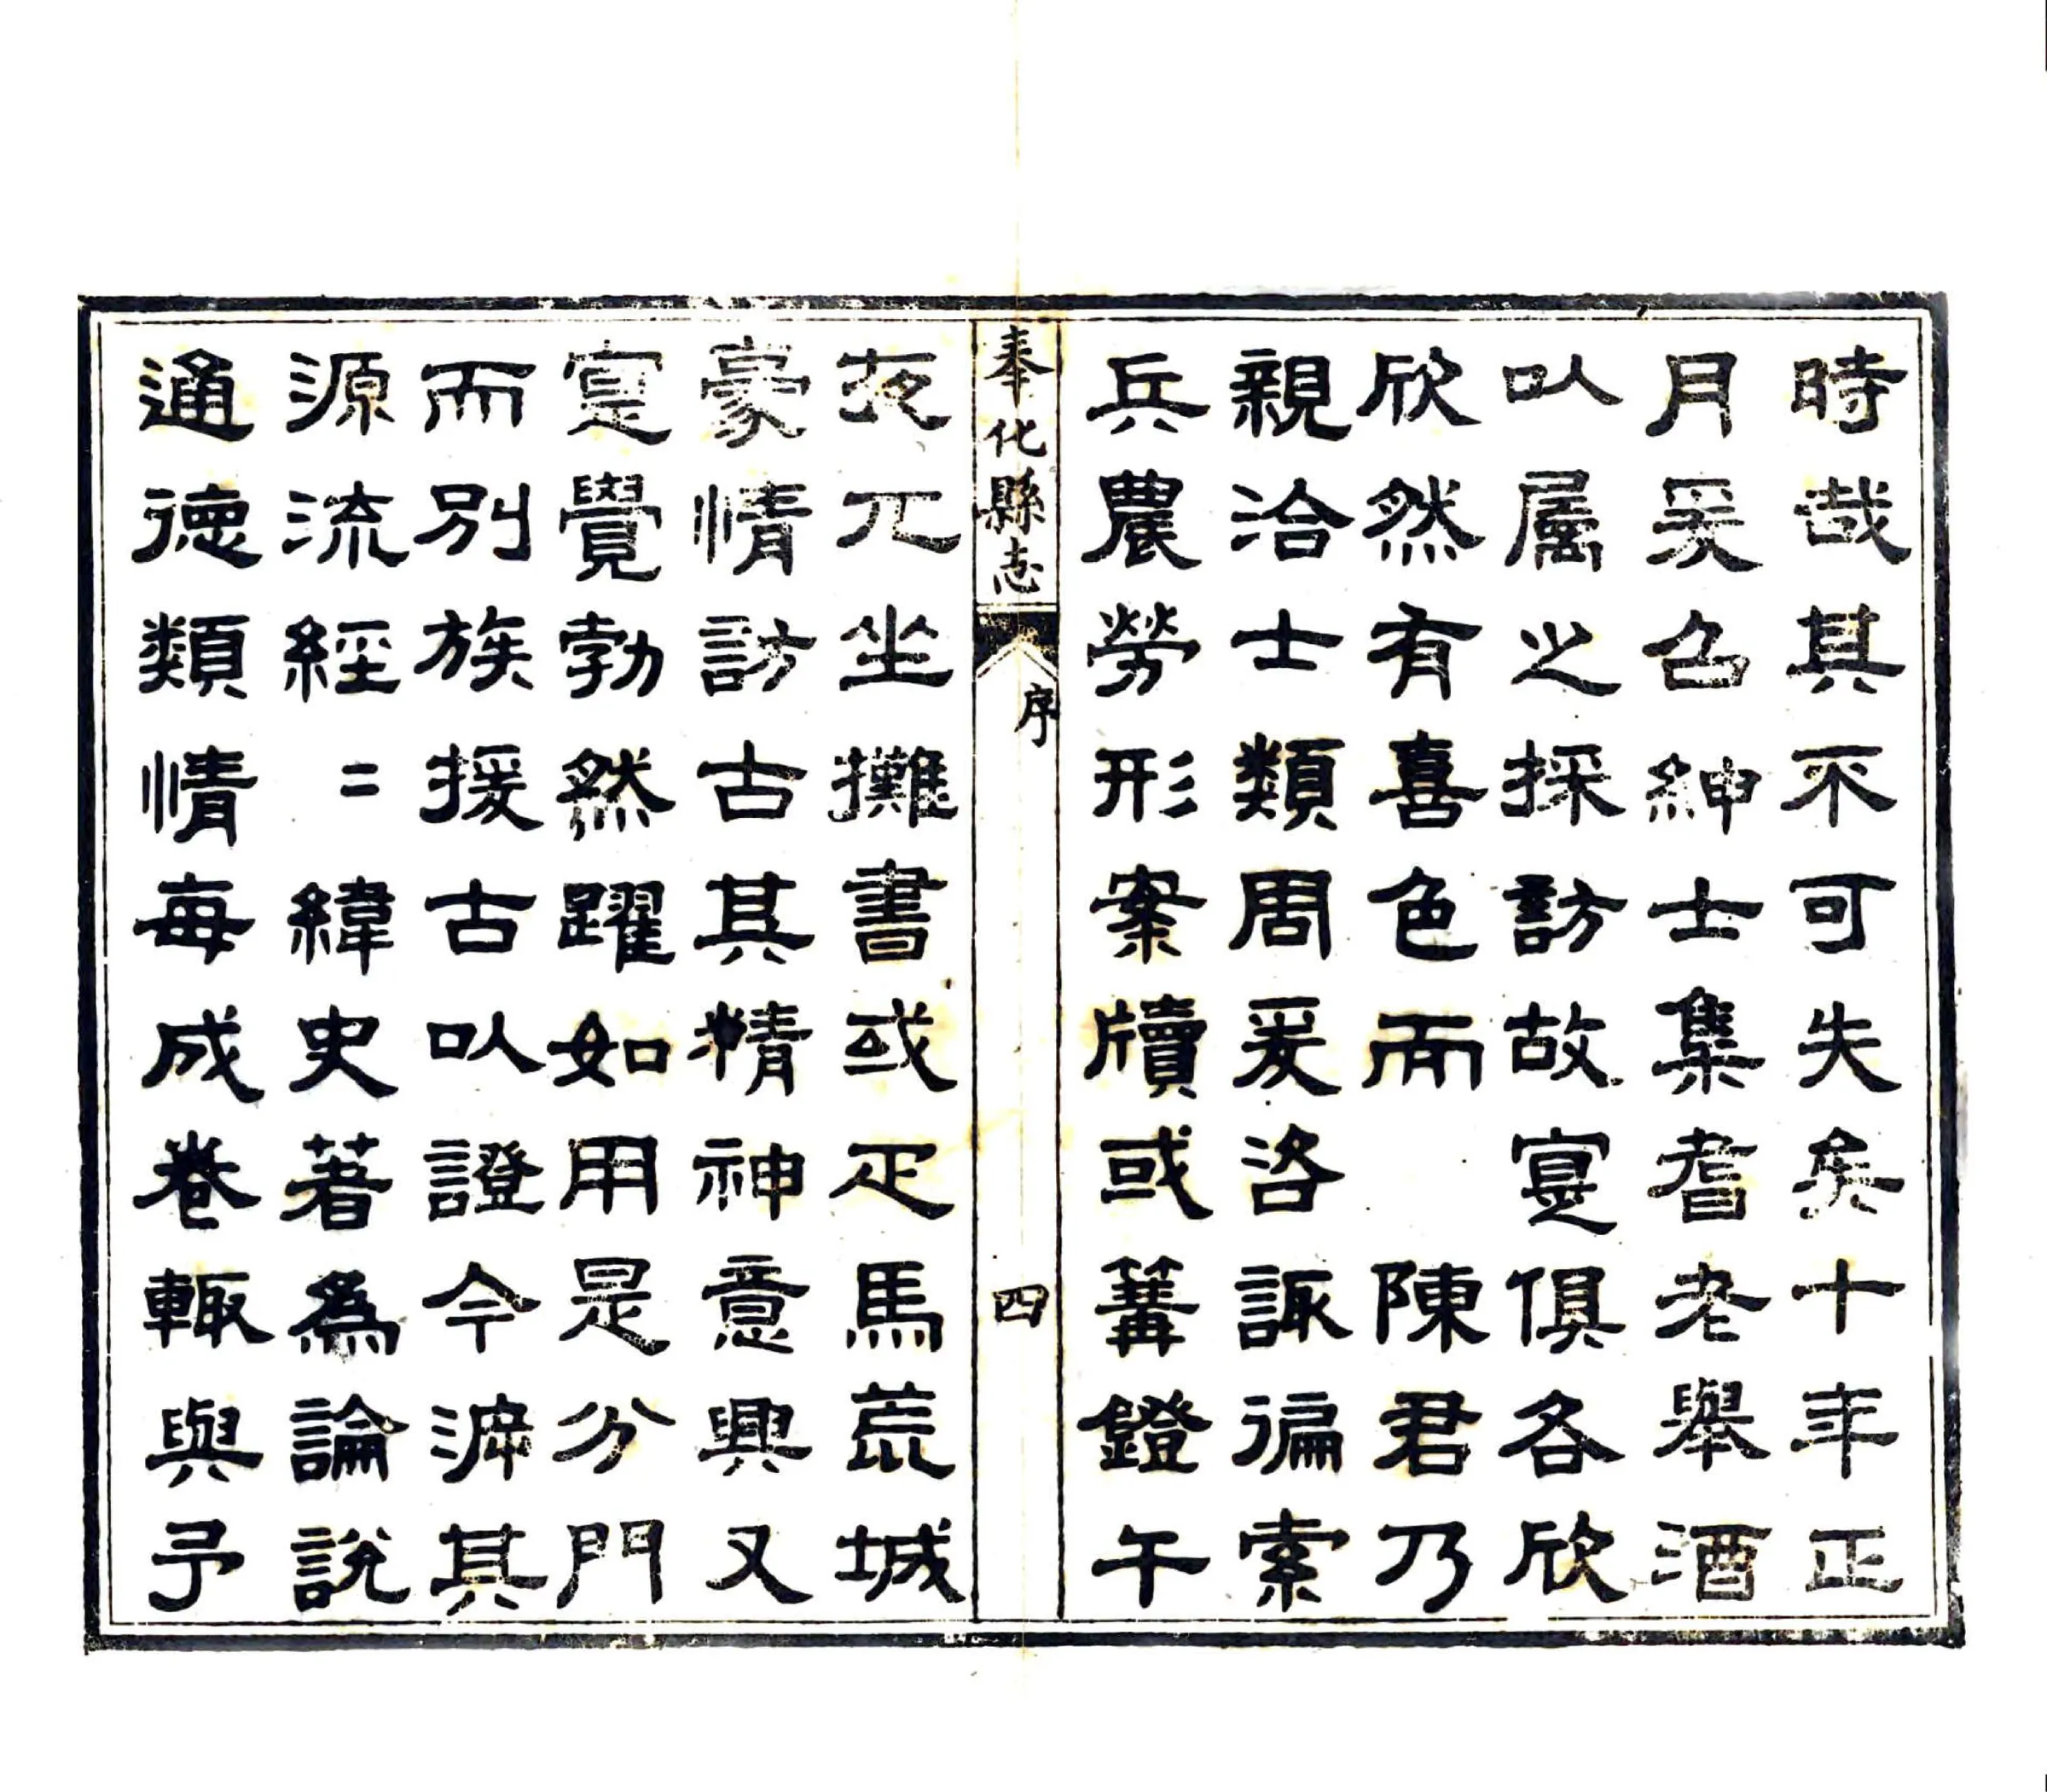 時哉其不可失矣十年正
月爰召紳士集耆老舉酒
以屬之採訪故寔俱各欣
欣然有喜色而 陳君乃
親洽士類周爰咨諏徧索
兵農勞形案牘或篝鐙午
奉化縣志 序 四
夜兀坐攤書或疋馬荒城
豪情訪古其精神意興又
寔覺勃然躍如用是分門
而別族援古以證今泝其
源流經二緯史著為論說
通德類情每成卷輒與予